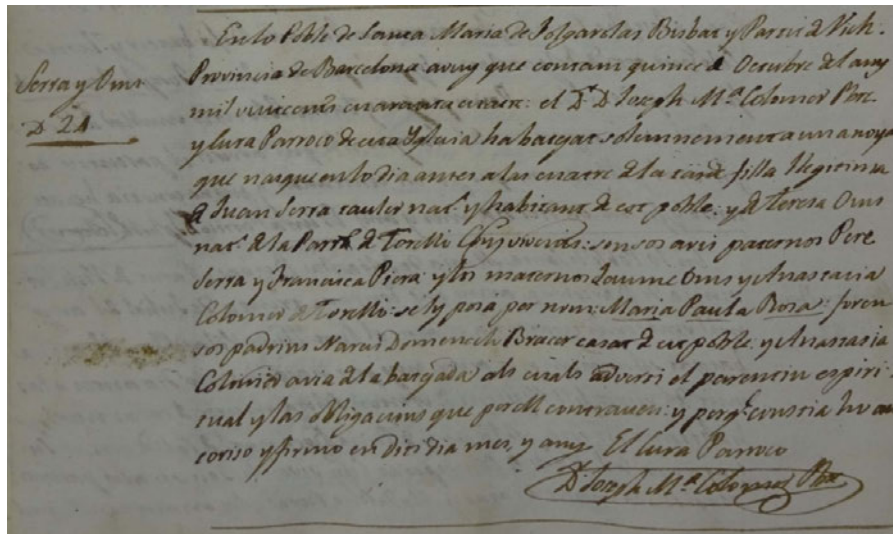 Serra y Oms
D 24
En lo Poble de Santa Maria de Folgarolas Bisbat y Partit de Vich
Provincia de Barcelona avuy que contam quinze de Octubre del any
mil vuitcents cuaranta cuatre: el Dr. D. Joseph Ma. Colomer Pbre.
y Cura Parroco de esta Iglesia ha bategat solemnement a una noya
que nasqué en lo dia antes a las cuatre de la tarde filla llegitima
de Juan Serra tauler nat. y habitant de est poble: y de Teresa Oms
nat. de la Parra. de Torelló: sen sos avis paternos Pere
Serra y Francisca Piera y los maternos Jaume Oms y Anastasia
Colomer de Torelló: se ly posá por nom: Maria Paula Rosa: foren
sos padrins Narcis Domenech Bracer casat de est poble y Anastasia
Colomer avia de la bategada als cuals advertí el parentiu espiri-
tual y las obligacions que per ell contrauen: y perq. constia ho au-
toriso y firmo en dits dia mes, y any El Cura Parroco
Dr. Joseph Ma. Colomer Pbre